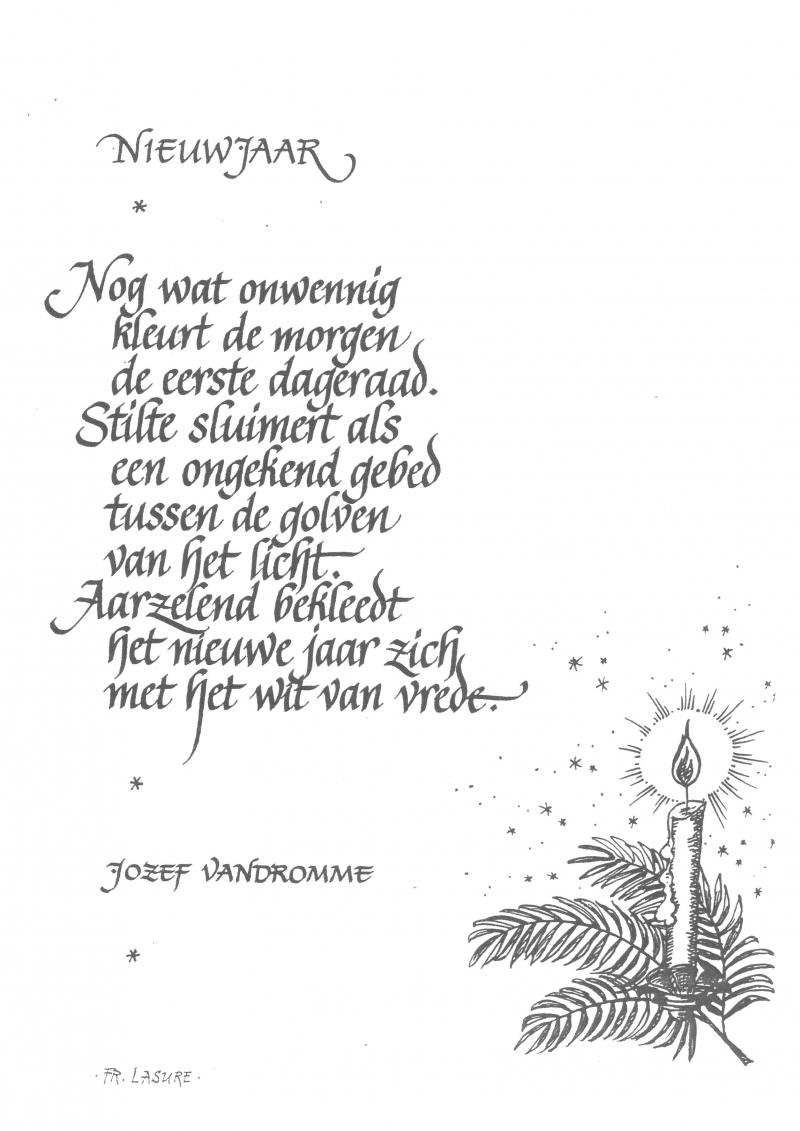 NIEUWJAAR
*
Nog wat onwennig
kleurt de morgen
de eerste dageraad.
Stilte sluimert als
een ongekend gebed
tussen de golven
van het licht.
Aarzelend bekleedt
het nieuwe jaar zich
met het wit van vrede.
*
JOZEF VANDROMME
*
· FR. LASURE ·